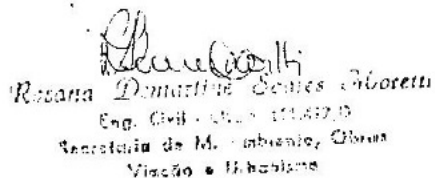 Rosana Demartine Soares Moretti
Eng. Civil
Secretaria de M. Ambiente, Obras
Viação e Urbanismo